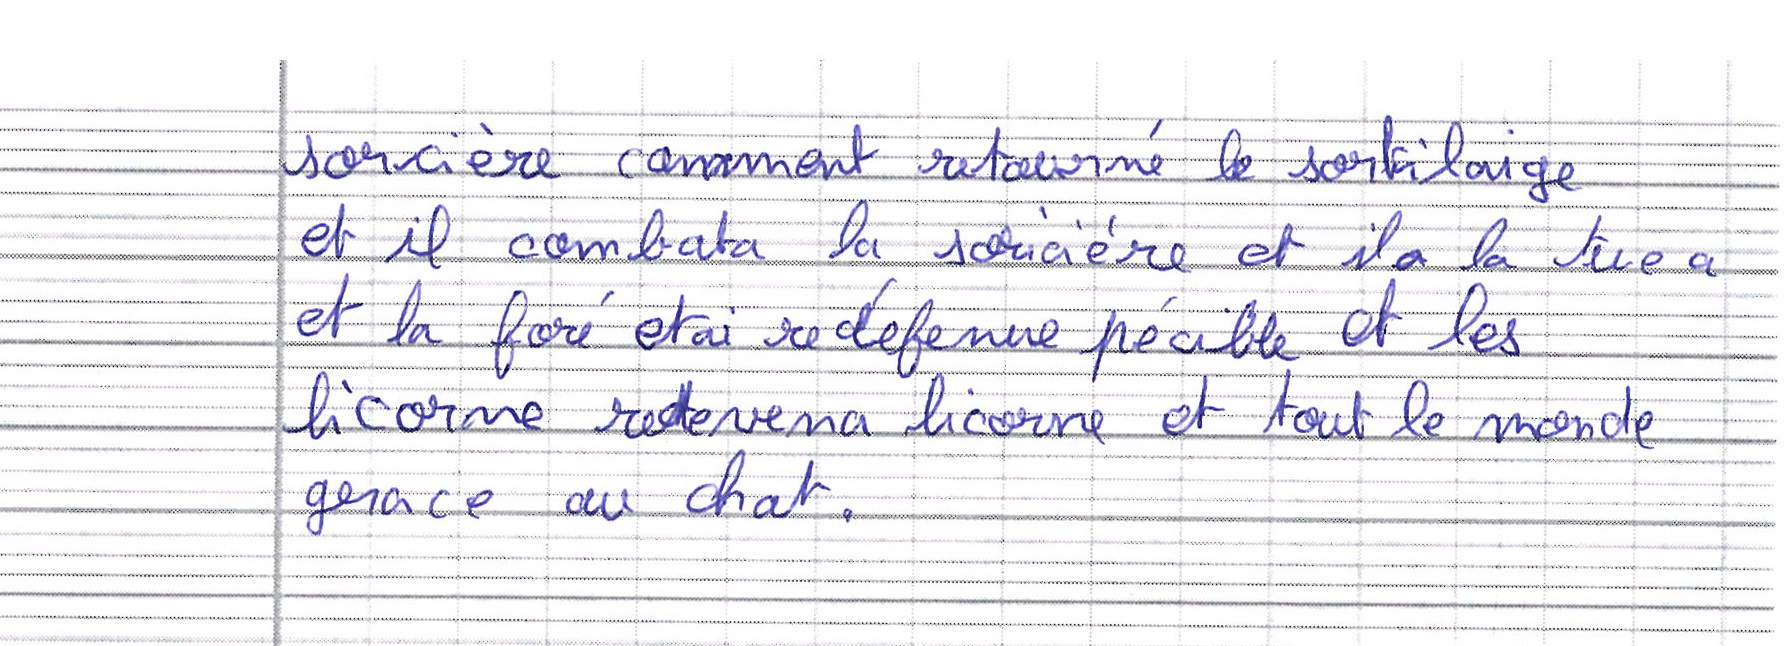 sorcière comment retourné le sortilaige
et il combata la sorciére et ila la tue a
et la foré etai redéfenue pécible et les
licorne redevena licorne et tout le monde
grace au chat.